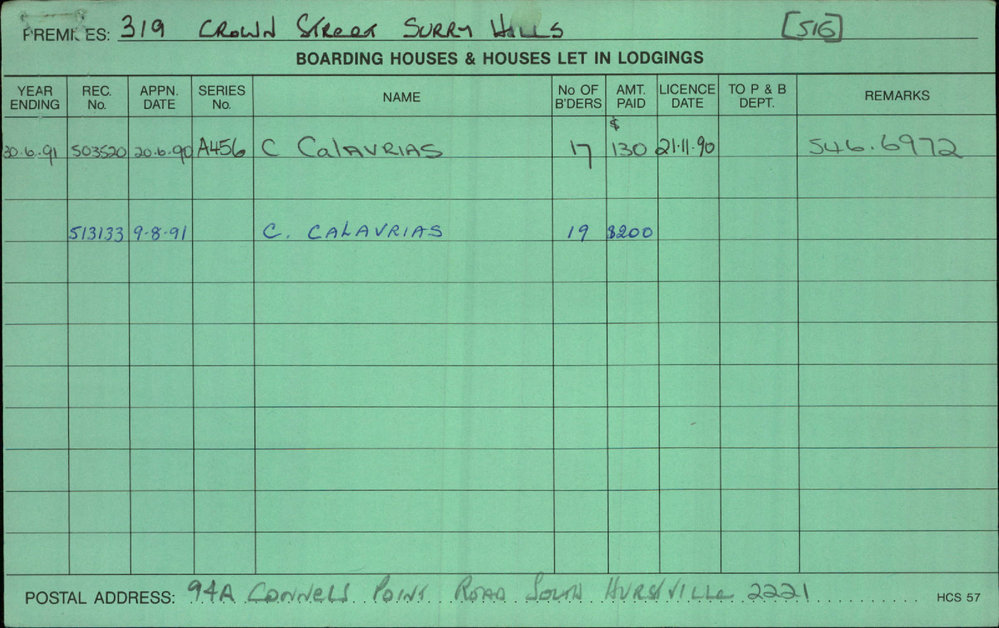 PREMISES: 319 Crown Street Surry Hills [516]
BOARDING HOUSES & HOUSES LET IN LODGINGS
YEAR ENDING REC. No. APPN. DATE SERIES No. NAME No OF B'DERS AMT. PAID LICENCE DATE TO P & B DEPT. REMARKS
30.6.91 503520 20.6.90 A456 C CALAVRIAS 17 $ 130 21.11.90 546.6972
513133 9-8-91 C. CALAVRIAS 19 $200
POSTAL ADDRESS: 94A Connells Point Road South Hurstville 2221 HCS 57